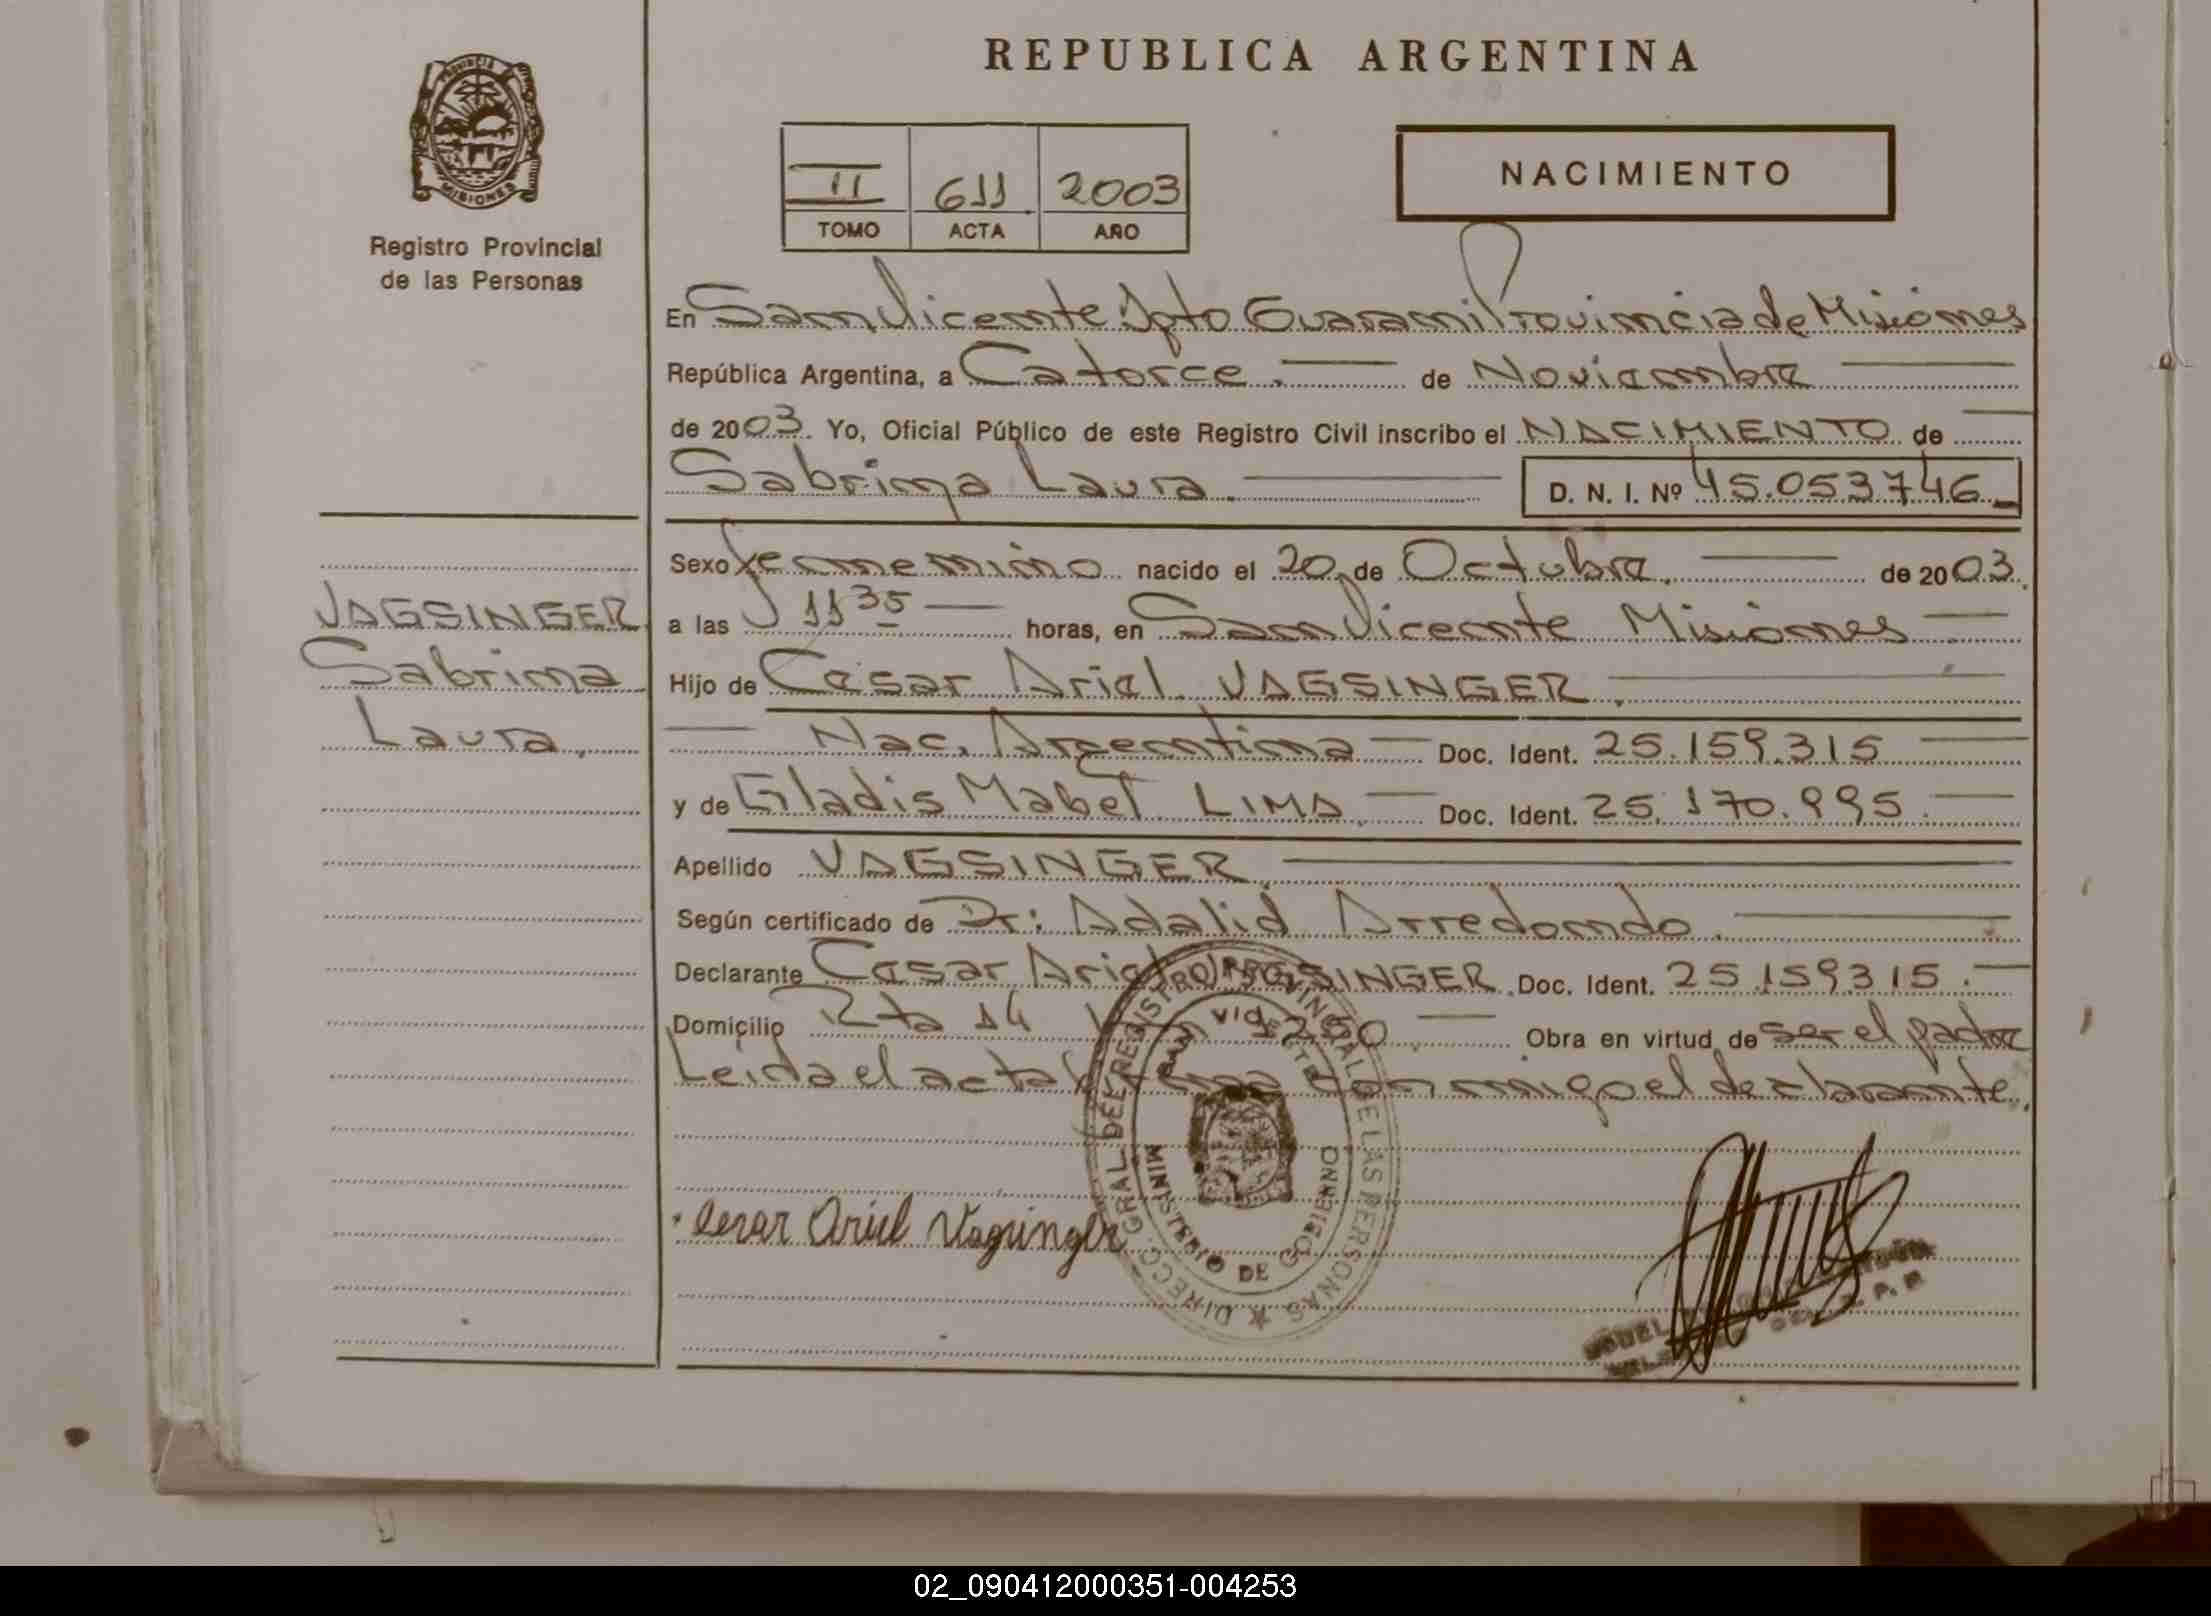 REPUBLICA ARGENTINA
PROVINCIA DE
MISIONES
Registro Provincial
de las Personas
II 611 2003
TOMO ACTA AÑO
NACIMIENTO
En San Vicente Dpto Guarani Provincia de Misiones
República Argentina, a Catorce. de Noviembre
de 2003. Yo, Oficial Público de este Registro Civil inscribo el NACIMIENTO de
Sabrina Laura. D. N. I. Nº 45.053746
Sexo femenino nacido el 20 de Octubre. de 2003.
a las 11 35 horas, en San Vicente Misiones
Hijo de Cesar Ariel VAGSINGER.
Nac. Argentina Doc. Ident. 25.159.315
y de Gladis Mabel LIMA. Doc. Ident. 25.170.995.
Apellido VAGSINGER.
Según certificado de Dr: Adalid Arredondo.
Declarante Cesar Ariel VAGSINGER. Doc. Ident. 25.159.315.
Domicilio Rta 14 Km 250. Obra en virtud de ser el padre
Leida el acta firma conmigo el declarante.
VAGSINGER
Sabrina
Laura.
Cesar Ariel Vagsinger
DIRECC. GRAL. DEL REGISTRO PROVINCIAL DE LAS PERSONAS
SAN VICENTE
MINISTERIO DE GOBIERNO
02_090412000351-004253